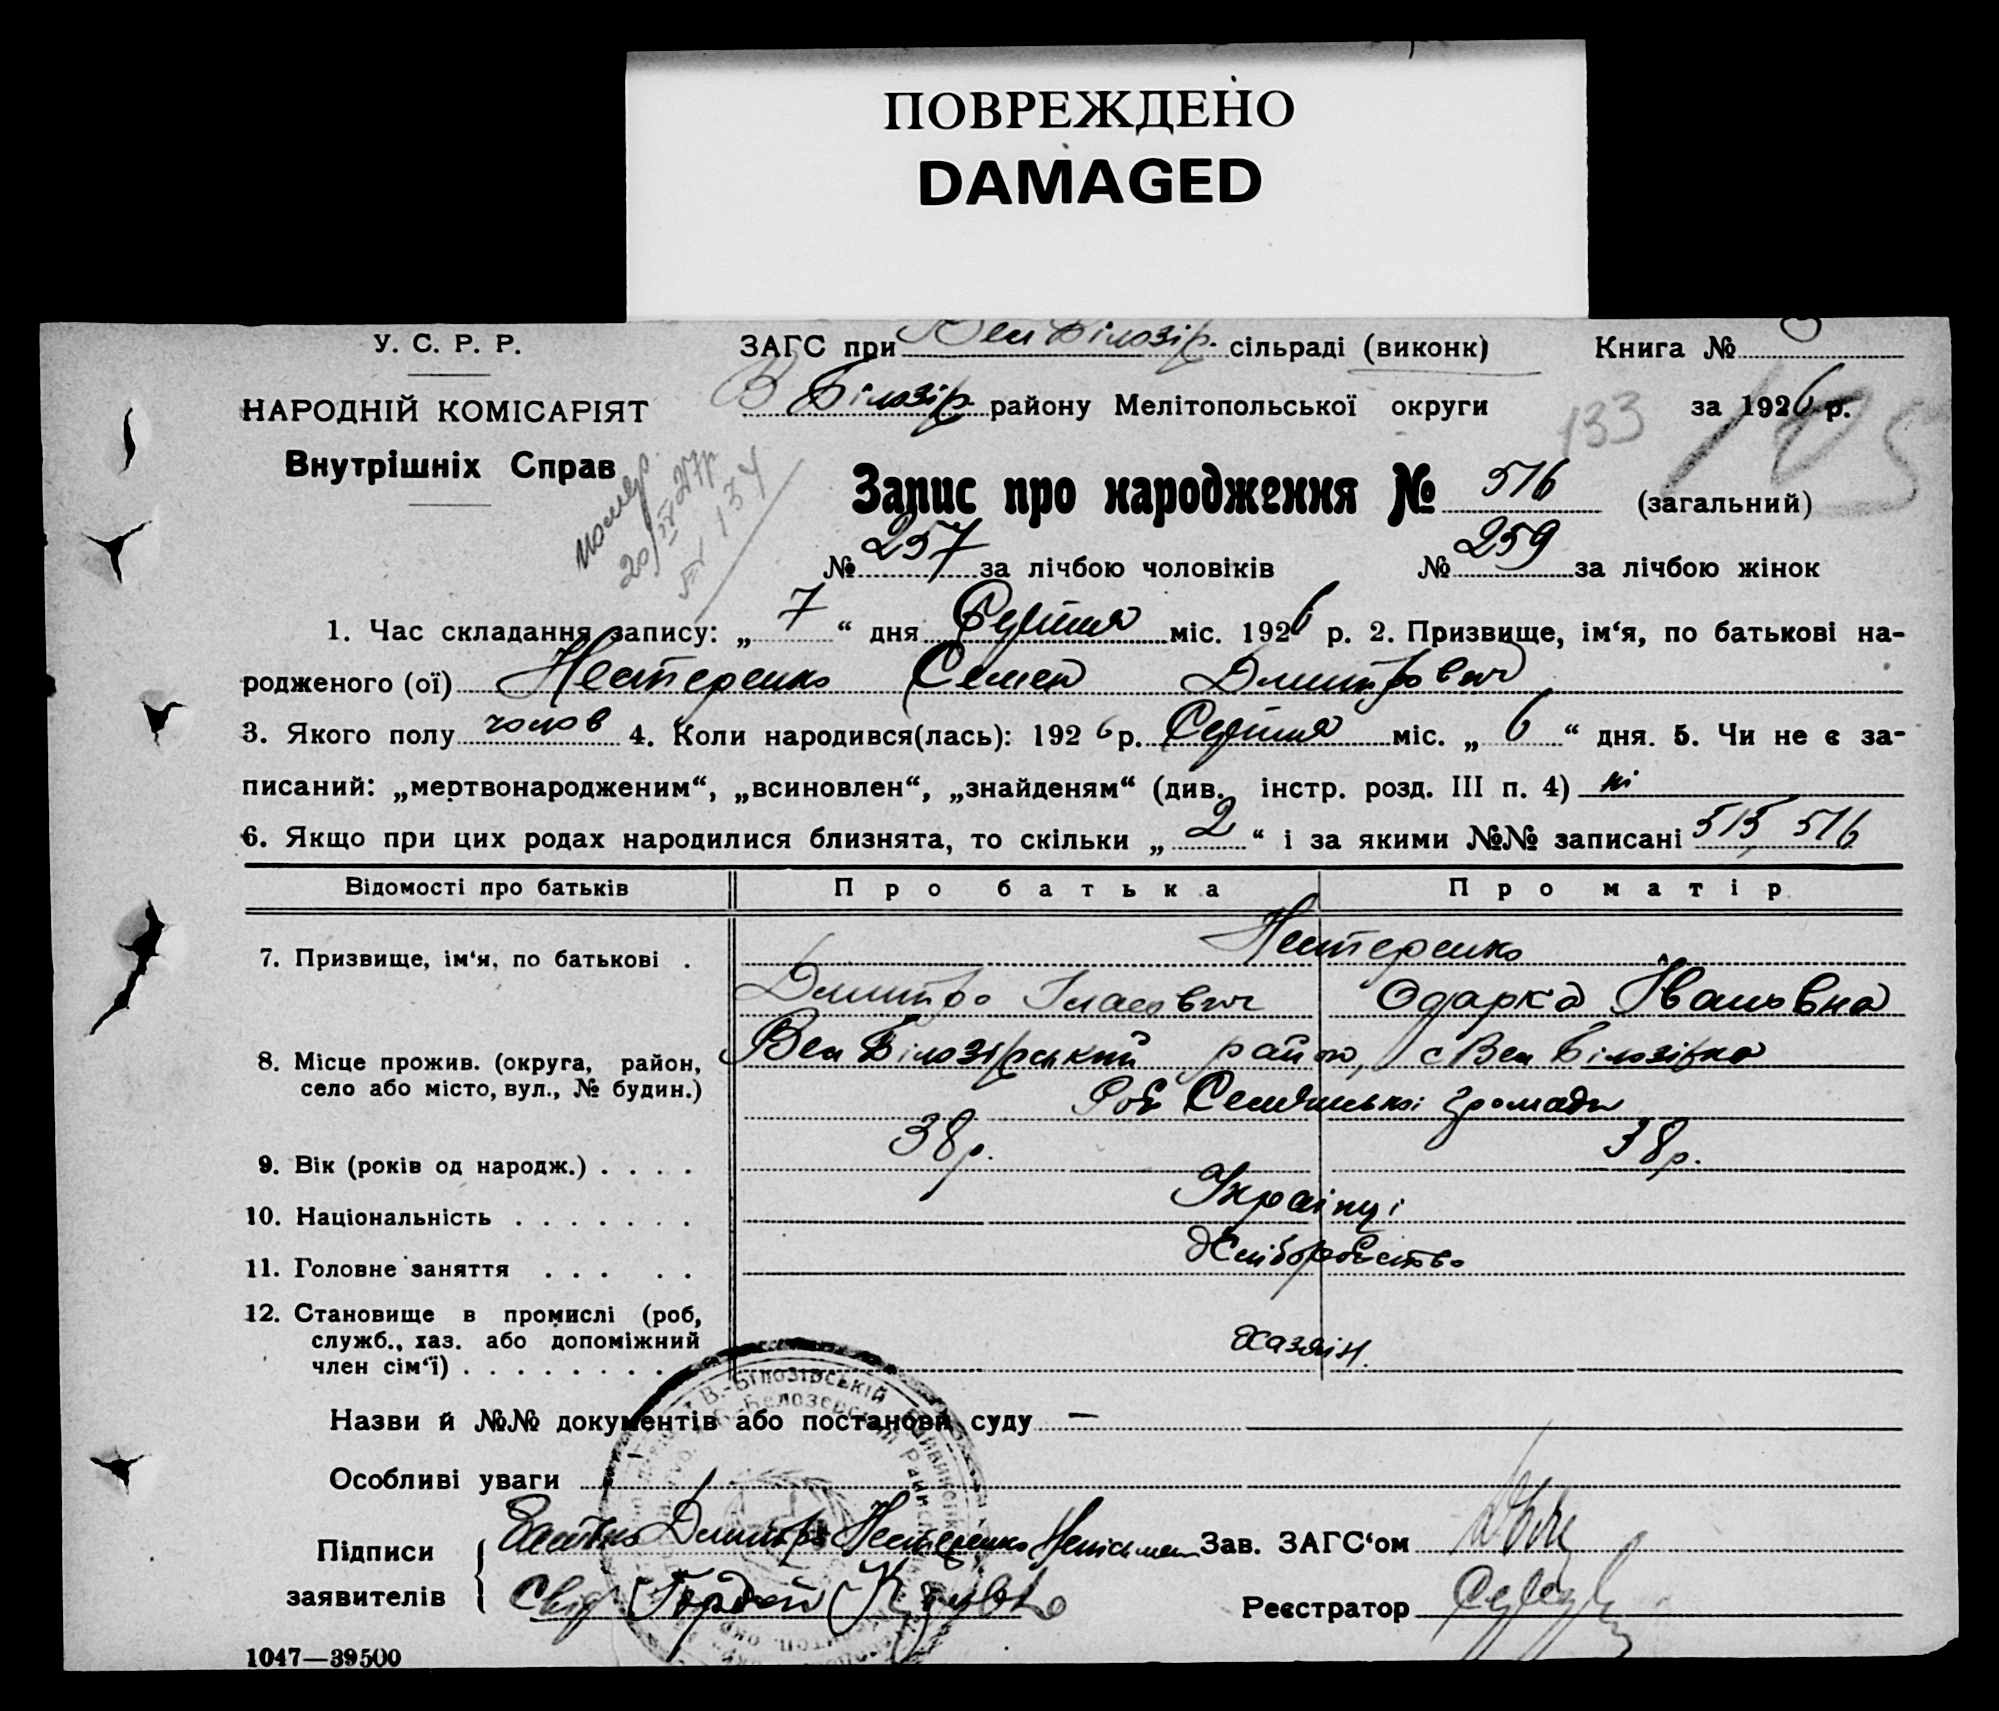 ПОВРЕЖДЕНО
DAMAGED
У. С. Р. Р.
ЗАГС при Вел Білозір. сільраді (виконк) Книга №
НАРОДНІЙ КОМІСАРІЯТ
В Білозір району Мелітопольської округи за 1926 р.
133
125
Внутрішніх Справ
помер.
134
Запис про народження № 516 (загальний)
№ 257 за лічбою чоловіків № 259 за лічбою жінок
1. Час складання запису: „ 7 “ дня Серпня міс. 1926 р. 2. Призвище, ім‘я, по батькові на-
родженого (ої) Нестеренко Семен Дмитрович
3. Якого полу чолов 4. Коли народився(лась): 1926 р. Серпня міс. „ 6 “ дня. 5. Чи не є за-
писаний: „мертвонародженим“, „всиновлен“, „знайденям“ (див. інстр. розд. III п. 4) ні
6. Якщо при цих родах народилися близнята, то скільки „ 2 “ і за якими №№ записані 515, 516
Відомості про батьків Про батька Про матір
7. Призвище, ім‘я, по батькові . Нестеренко
Дмитро Власович Одарка Івановна
8. Місце прожив. (округа, район, Вел Білозірський район, с Вел Білозірка
село або місто, вул., № будин.)
громади
9. Вік (років од народж.) . . . . 38 р. 38 р.
10. Національність . . . . . . . Українці
11. Головне заняття . . . . . Хліборобство
12. Становище в промислі (роб,
служб., хаз. або допоміжний Хазяїн.
член сім‘ї) . . . . . . . .
Назви й №№ документів або постанови суду —
Особливі уваги
Підписи Батько Дмитро Нестеренко Неписьмен Зав. ЗАГС‘ом
заявителів Свід Гордей Реєстратор
1047—39500